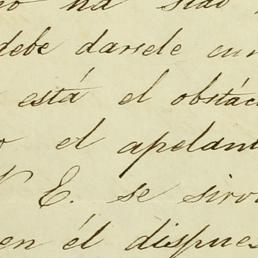 no ha sido
debe darsele cum
está el obstác
o el apelan
V E. se sirv
en él dispues